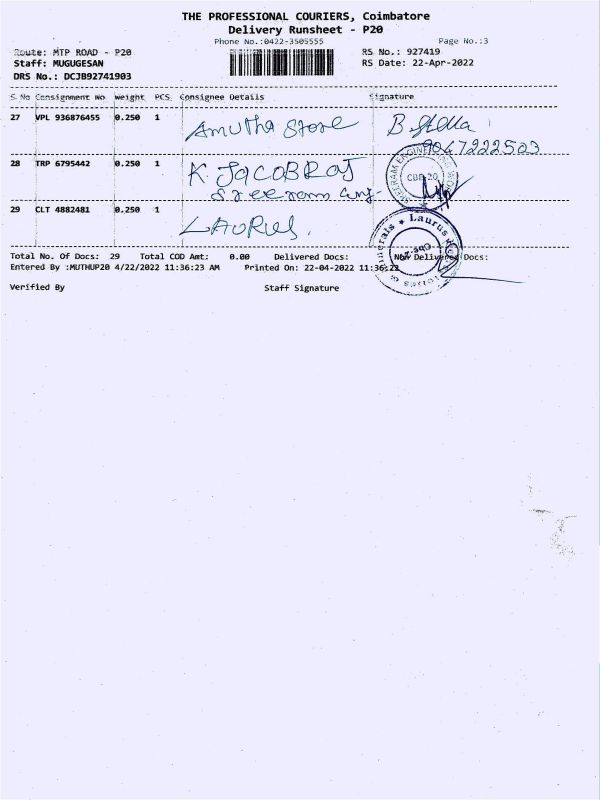 THE PROFESSIONAL COURIERS, Coimbatore
Delivery Runsheet - P20
Phone No.:0422-3505555 Page No.:3
Route: MTP ROAD - P20 RS No.: 927419
Staff: MUGUGESAN RS Date: 22-Apr-2022
DRS No.: DCJB92741903
S No Consignment No Weight PCS Consignee Details Signature
27 VPL 936876455 0.250 1 Amutha Store B. Stella
9047222503
28 TRP 6795442 0.250 1 K. JACOBRAJ
Sreeram Eng- CBE-20
29 CLT 4882481 0.250 1 LAURUS. Laurus
Total No. Of Docs: 29 Total COD Amt: 0.00 Delivered Docs: Non Delivered Docs:
Entered By :MUTHUP20 4/22/2022 11:36:23 AM Printed On: 22-04-2022 11:36:22
Verified By Staff Signature